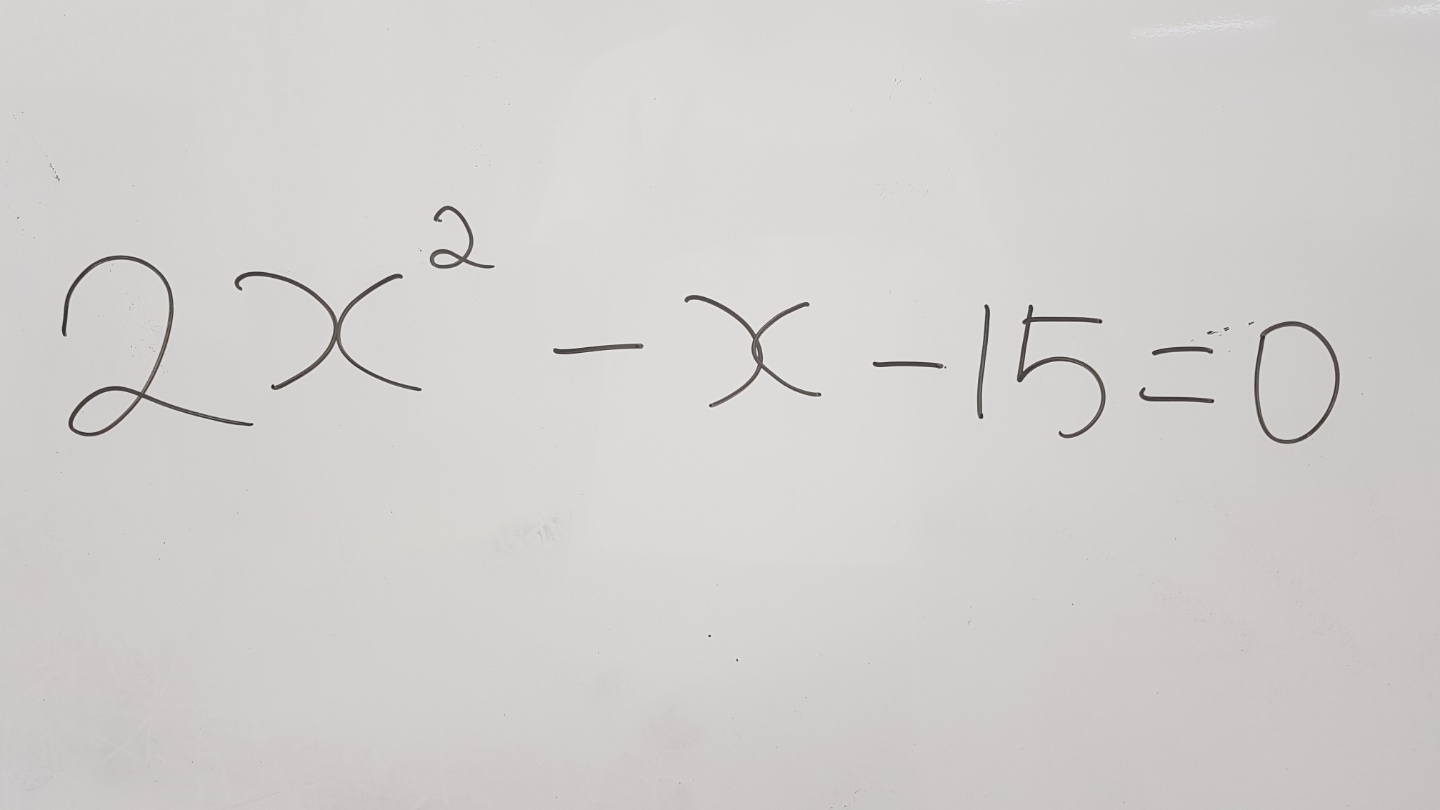 2x² - x - 15 = 0